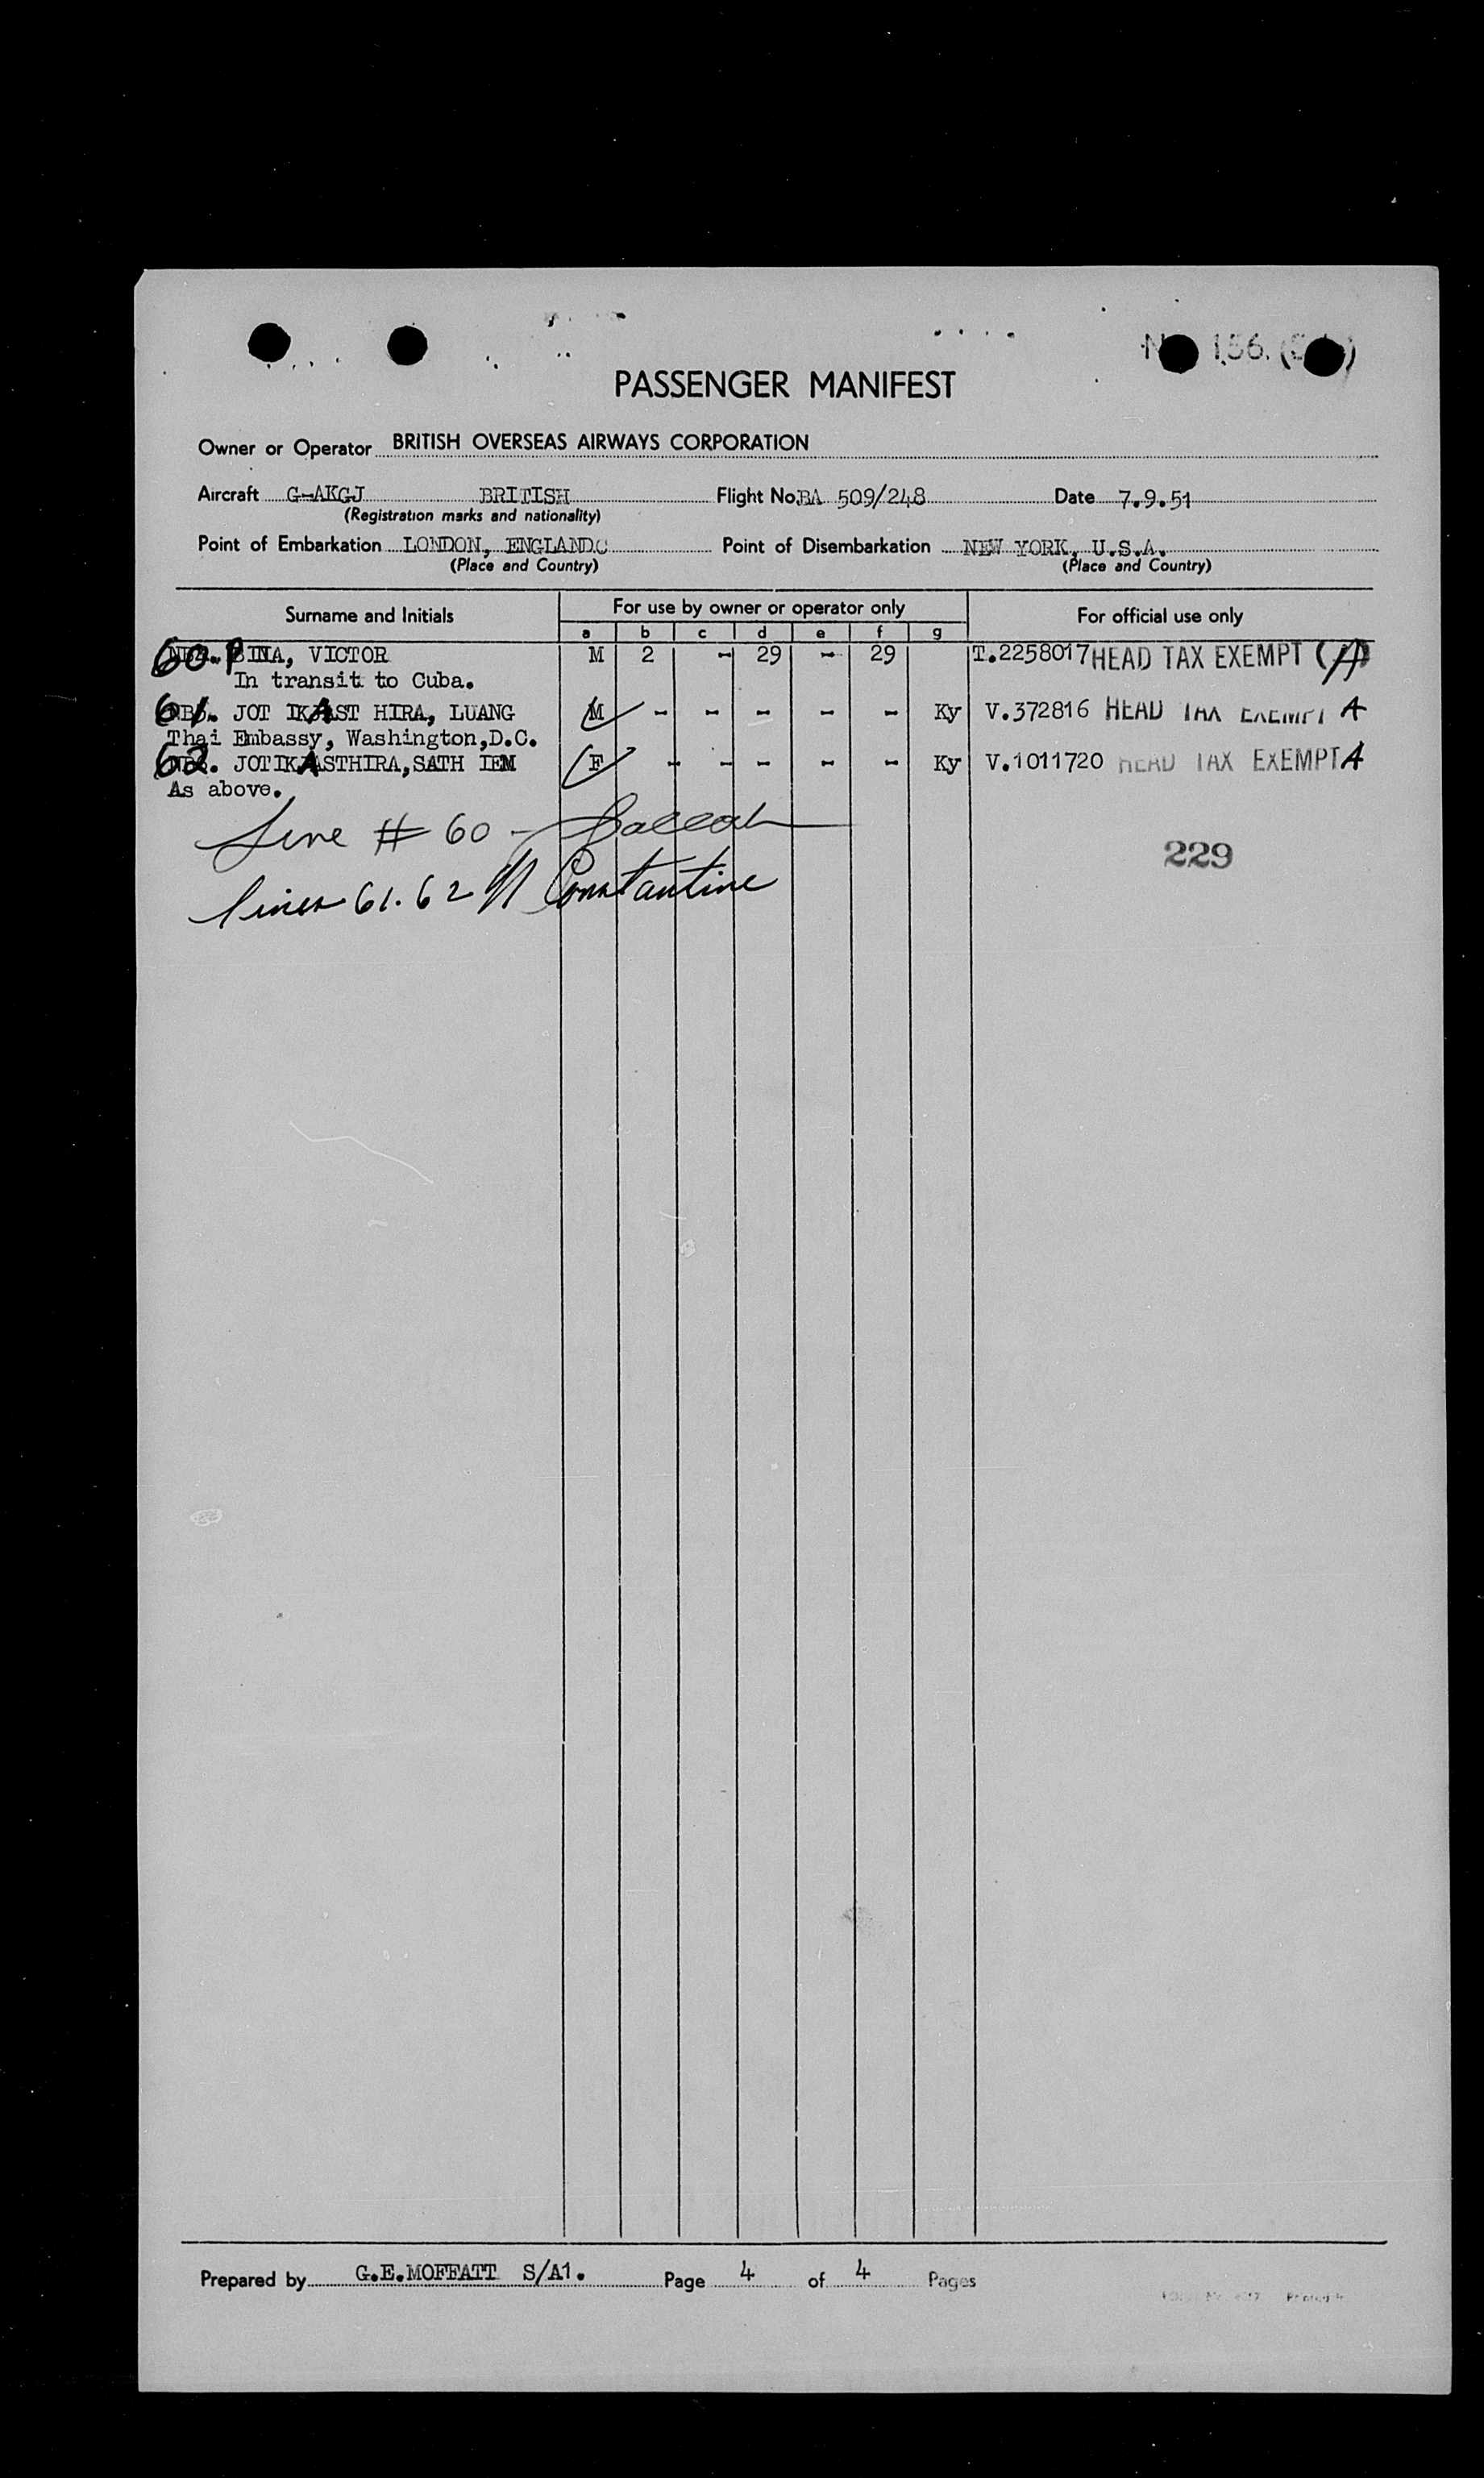 156.
PASSENGER MANIFEST
Owner or Operator BRITISH OVERSEAS AIRWAYS CORPORATION
Aircraft G-AKGJ BRITISH Flight No. BA 509/248 Date 7.9.51
(Registration marks and nationality)
Point of Embarkation LONDON, ENGLAND Point of Disembarkation NEW YORK, U.S.A.
(Place and Country) (Place and Country)
Surname and Initials For use by owner or operator only For official use only
a b c d e f g
60. VICTOR M 2 - 29 - 29 T.2258017 HEAD TAX EXEMPT (A)
In transit to Cuba.
61. JOT IKAST HIRA, LUANG M - - - - - Ky V.372816 HEAD TAX EXEMPT A
Thai Embassy, Washington,D.C.
62. JOTIKASTHIRA,SATH IEM F - - - - - Ky V.1011720 HEAD TAX EXEMPT A
As above.
Line # 60 -
229
lines 61. 62 Constantine
Prepared by G.E.MOFFATT S/A1. Page 4 of 4 Pages